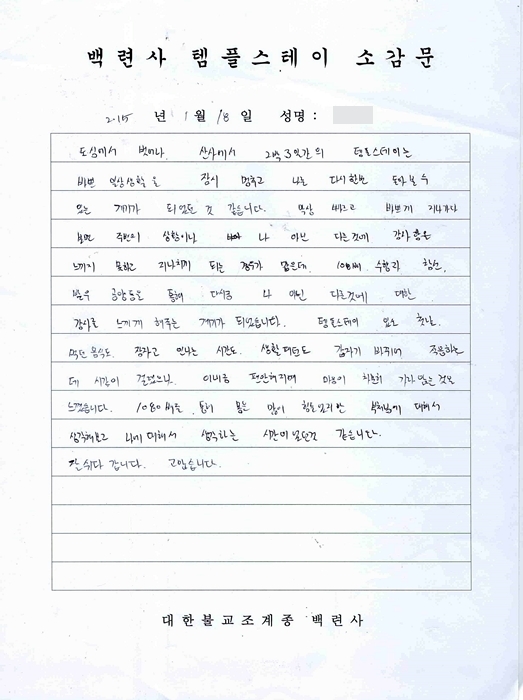 백련사 템플스테이 소감문
2015 년 1 월 18 일 성명 :
도심에서 벗어나 산사에서 2박 3일간의 템플스테이는
바쁜 일상생활을 잠시 멈추고 나를 다시한번 돌아볼 수
있는 계기가 되었던 것 같습니다. 항상 빠르고 바쁘게 지나가다
보면 주변의 상황이나 나 아닌 다른것에 감사함을
느끼지 못하고 지나치게 되는 경우가 많은데, 108배 수행과 참선,
발우 공양등을 통해 다시금 나 아닌 다른것에 대한
감사를 느끼게 해주는 계기가 되었습니다. 템플스테이 입소 첫날,
먹던 음식도, 잠자고 일어나는 시간도, 생활패턴도 갑자기 바뀌어 적응하는
데 시간이 걸렸으나, 이내금 편안해지며 마음이 차분히 가라앉는 것을
느꼈습니다. 1080배를 몸은 많이 힘들었지만 부처님에 대해서
생각해보고 나에 대해서 생각하는 시간이 었던것 같습니다.
잘 쉬다 갑니다. 고맙습니다.
대한불교조계종 백련사